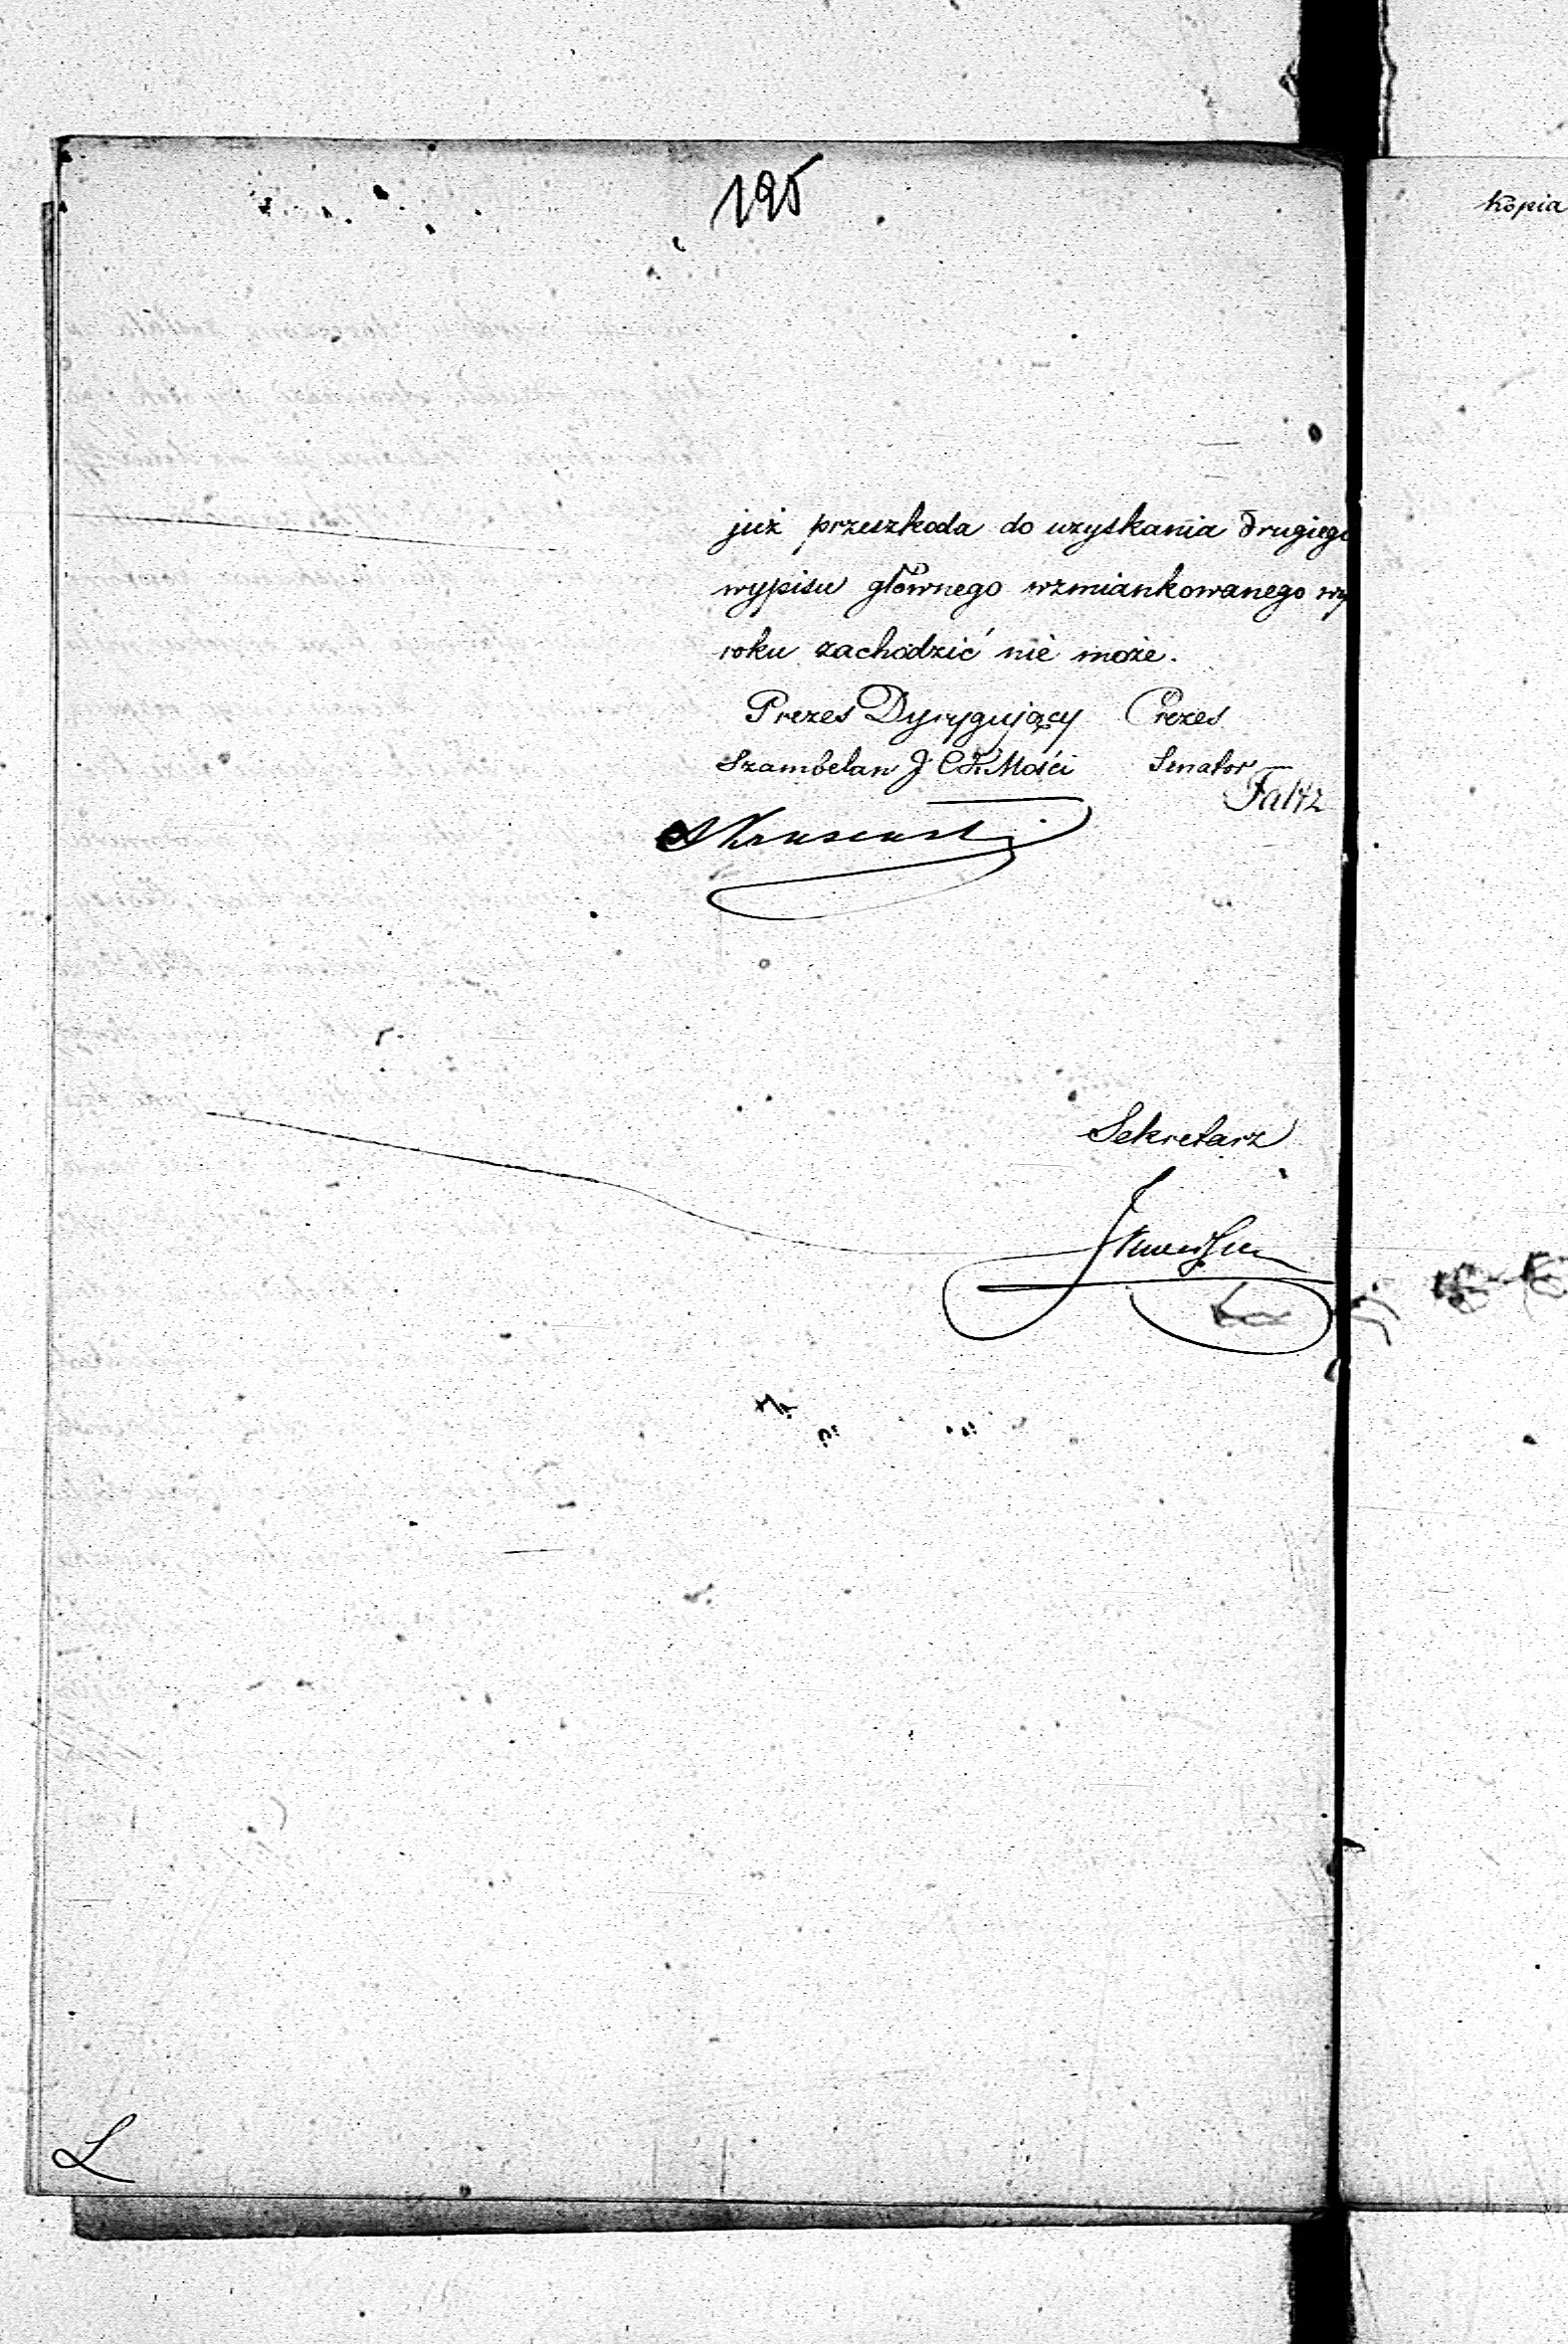 195
kopia
już przeszkoda do uzyskania drugiego
wypisu głównego wzmiankowanego wy
roku zachodzić nie może.
Prezes Dyrygujący Prezes
Szambelan J. C. K. Mości Senator
Faltz
Sekretarz
L